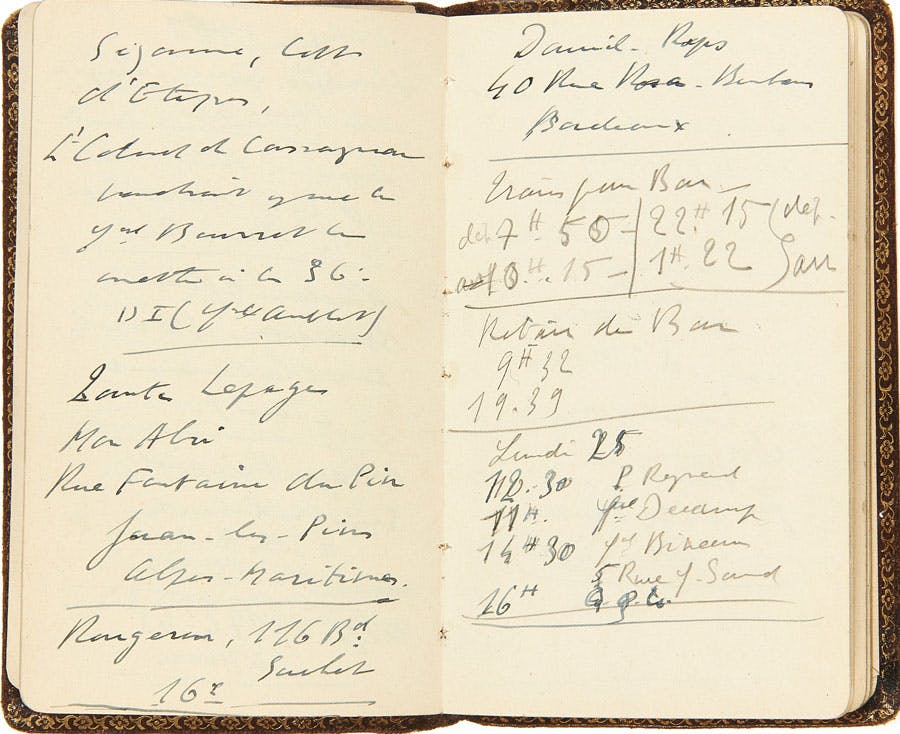 Sézanne,
d'Etapes,
Lt Colonel de Cassagnau
voudrait que le
gal Bourret le
mette à la 36e
DI (gal Aublet)
Lepages
Mon Abri
Rue Fontaine du Pin
Juan-les-Pins
Alpes-Maritimes.
Rougeron, 116 Bd
Suchet
16e
Daniel-Rops
40 Rue Rosa-Bonheur
Bordeaux
Trains pour Bar
dép. 7H 50 - | 22H 15 (dép.
H 15 - | 1H 22
Retour de Bar
9H 32
19.39
Lundi 25
30 P. Regnard
11H. gal Decamp
14H 30 gal Bineau
5 Rue G. Sand
16H